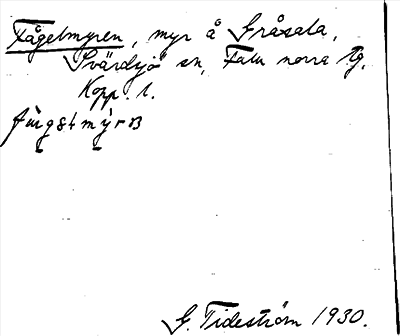 Fågelmyren, myr å Gråsala,
Svärdsjö sn, Falu norra tg,
Kopp. l.
G. Tideström 1930.